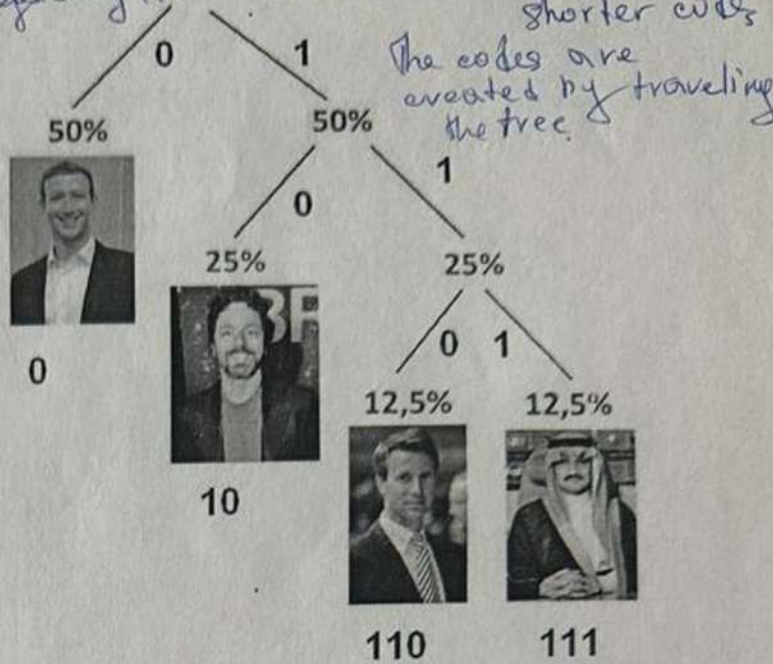 shorter codes
0
1
The codes are
created by traveling
the tree.
50%
50%
1
0
25%
25%
0 1
0
12,5%
12,5%
10
110
111